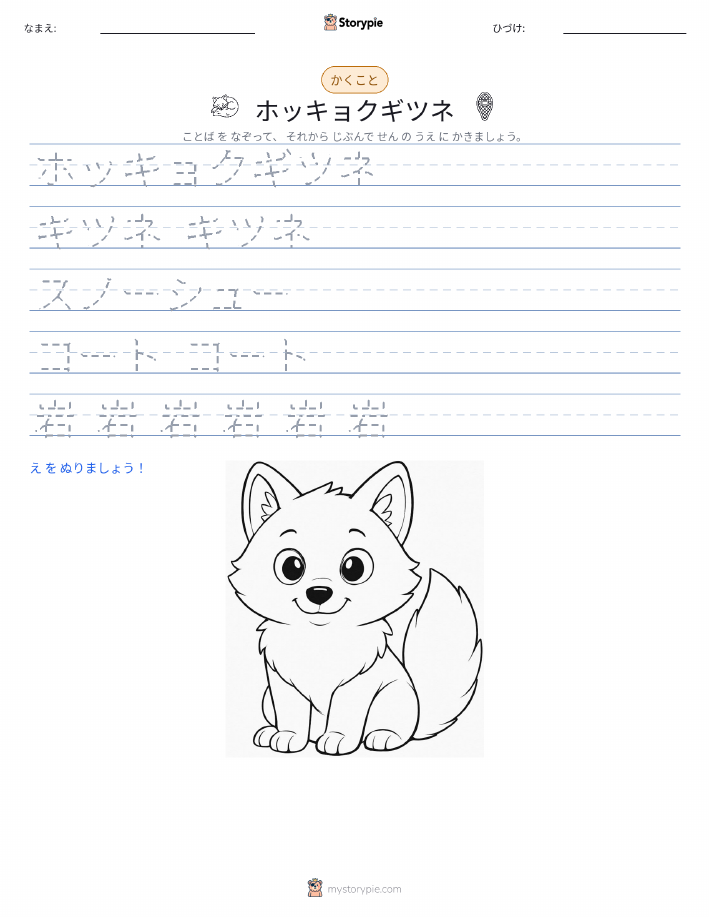 なまえ:
Storypie
ひづけ:
かくこと
ホッキョクギツネ
ことば を なぞって、 それから じぶんで せん の うえ に かきましょう。
ホッキョクギツネ
ギツネ ギツネ
スノーシュー
コート コート
岩 岩 岩 岩 岩 岩
え を ぬりましょう！
mystorypie.com